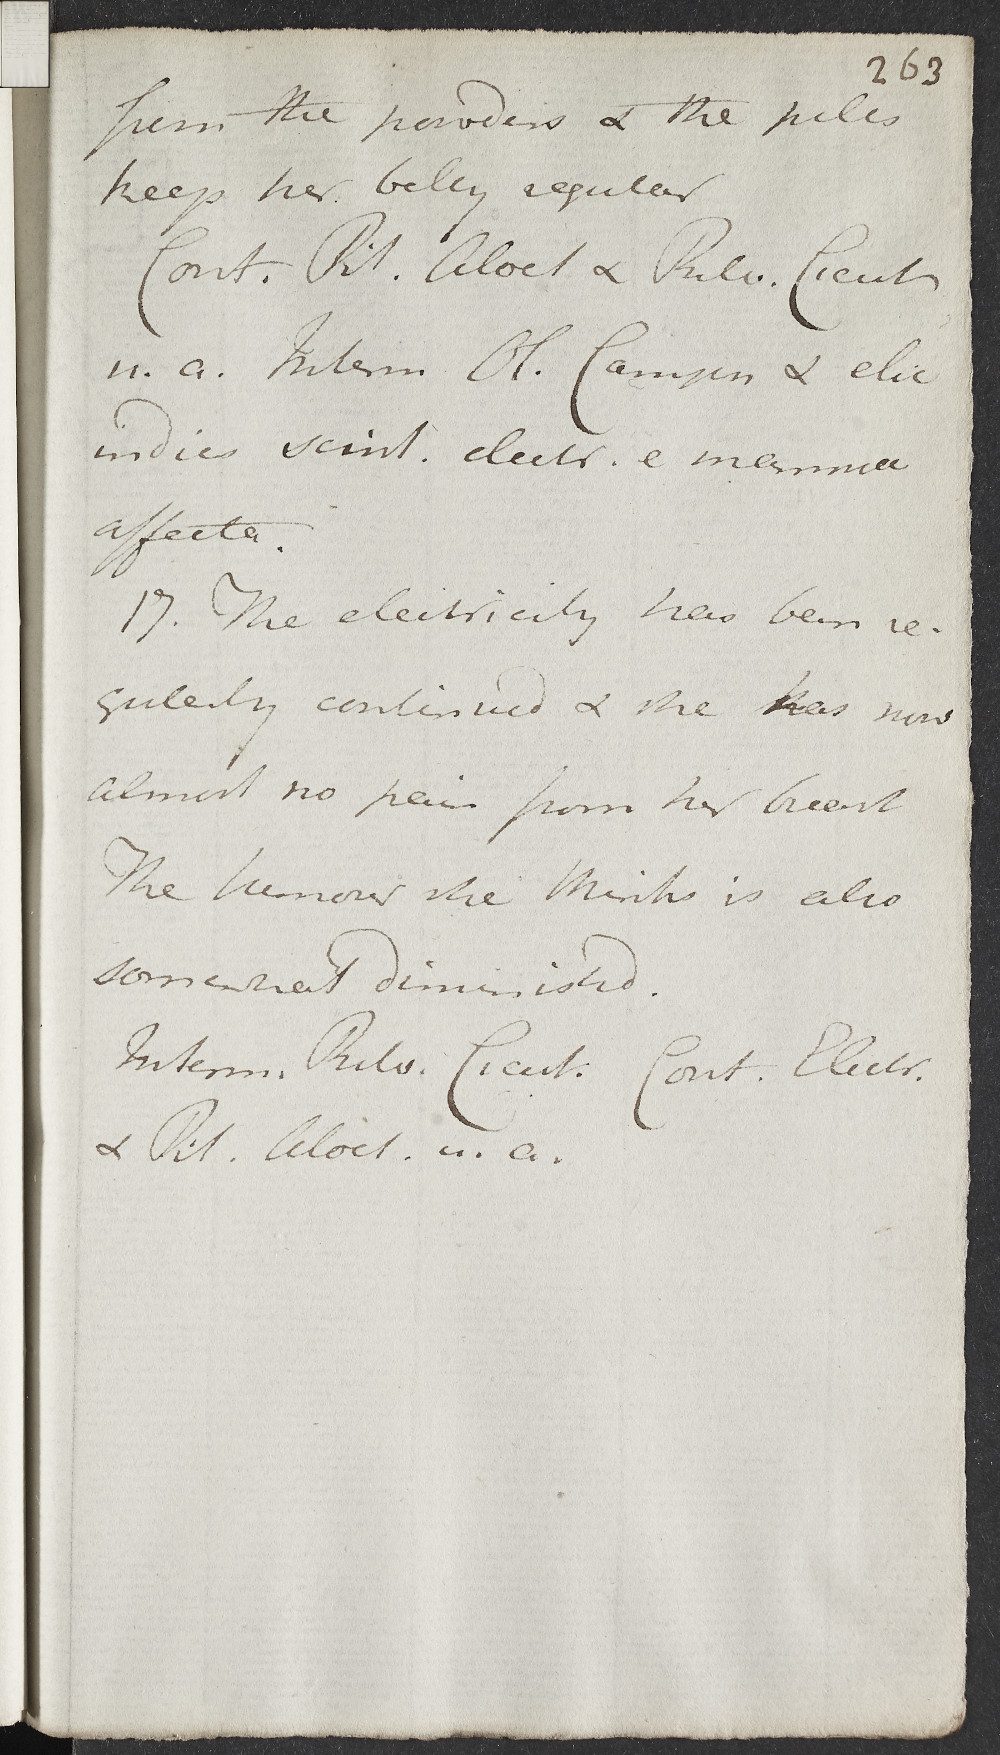 263
from the powders & the pills
keep her belly regular
Cont. Pil. Aloet & Pulv. Cicut
u. a. Interm Ol. Campn & elic
indies scint. electr. e mamma
affecta.
17. The electricity has been re-
gularly continued & she has now
almost no pain from her breast
The humour she thinks is also
somewhat diminished.
Interm. Pulv. Cicut. Cont. Electr.
& Pil. Aloet. u. a.